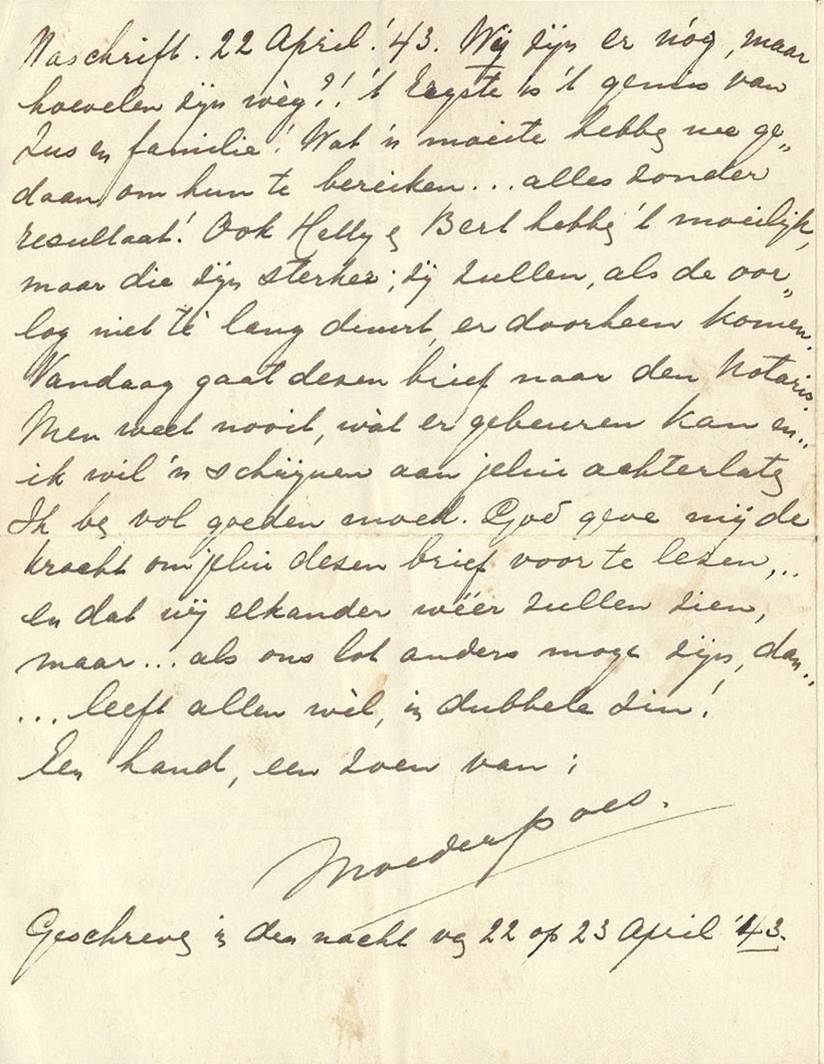 Naschrift. 22 April. '43. Wij zijn er nóg, maar
hoevelen zijn wèg?! 't Ergste is 't gemis van
Zus en familie! Wat 'n moeite hebben we ge„
daan, om hun te bereiken... alles zonder
resultaat! Ook Helly en Bert hebben 't moeilijk,
maar die zijn sterker; zij zullen, als de oor„
log niet tè lang duurt, er doorheen komen.
Vandaag gaat dezen brief naar den Notaris.
Men weet nooit, wàt er gebeuren kan en..
ik wil 'n schrijven aan jelui achterlaten
Ik ben vol goeden moed. God geve mij de
kracht om jelui dezen brief voor te lezen,..
en dat wij elkander wéér zullen zien,
maar... als ons lot anders moge zijn, dan..
... leeft allen wèl, in dubbele zin!
Een hand, een zoen van:
Moederpoes.
Geschreven in den nacht van 22 op 23 April '43.